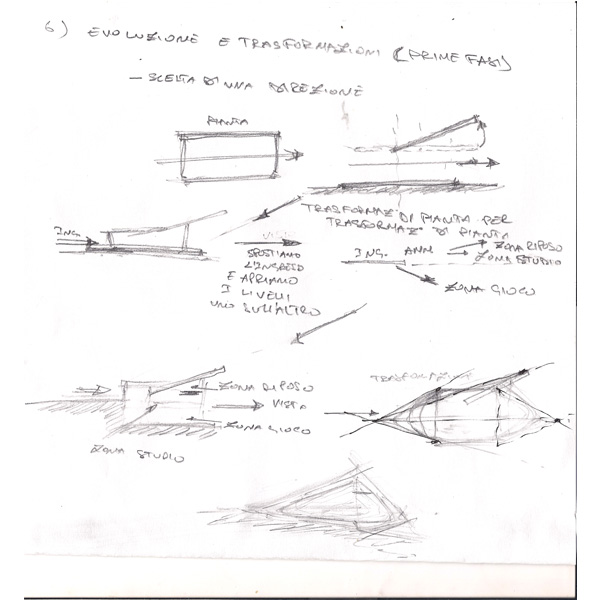 6) EVOLUZIONE E TRASFORMAZIONI (PRIME FASI)
- SCELTA DI UNA DIREZIONE
PIANTA
TRASFORMAZ. DI PIANTA PER
TRASFORMAZ. DI PIANTA
ING.
VISTA
SPOSTIAMO
L'INGRESSO
E APRIAMO
I LIVELLI
UNO SULL'ALTRO
ING.
ZONA RIPOSO
ZONA STUDIO
ZONA GIOCO
ZONA RIPOSO
VISTA
ZONA GIOCO
ZONA STUDIO